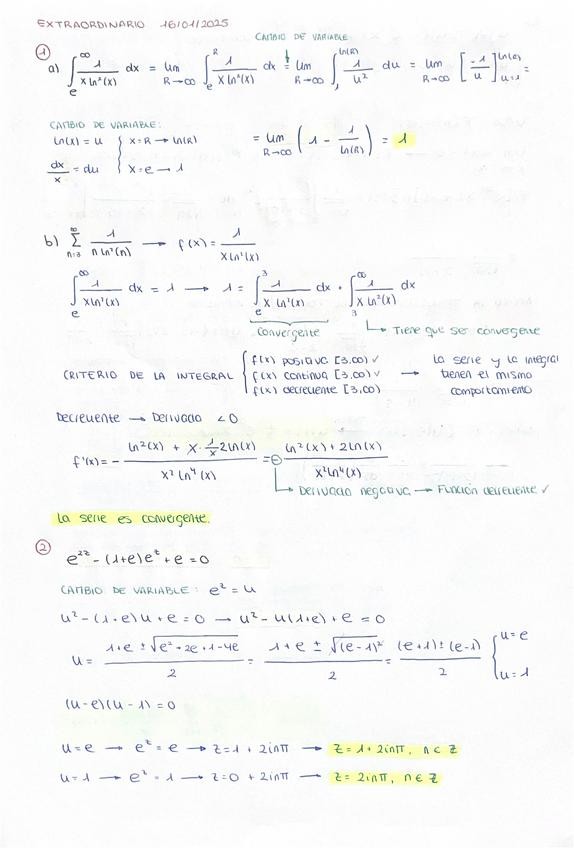 EXTRAORDINARIO 16/01/2025
CAMBIO DE VARIABLE
① a) ∫_e^∞ 1/(x ln²(x)) dx = lim_{R→∞} ∫_e^R 1/(x ln²(x)) dx = lim_{R→∞} ∫_1^{ln(R)} 1/u² du = lim_{R→∞} [-1/u]_{u=1}^{ln(R)} =
CAMBIO DE VARIABLE:
ln(x) = u { x=R → ln(R)
dx/x = du { x=e → 1
= lim_{R→∞} (1 - 1/ln(R)) = 1
b) Σ_{n=3}^∞ 1/(n ln²(n)) → f(x) = 1/(x ln²(x))
∫_e^∞ 1/(x ln²(x)) dx = 1 → 1 = ∫_e^3 1/(x ln²(x)) dx + ∫_3^∞ 1/(x ln²(x)) dx
Convergente
Tiene que ser convergente
CRITERIO DE LA INTEGRAL { f(x) positiva [3,∞) ✓
f(x) continua [3,∞) ✓
f(x) decreciente [3,∞)
→ la serie y la integral
tienen el mismo
comportamiento
Decreciente → Derivada < 0
f'(x) = - (ln²(x) + x · 1/x 2ln(x))/(x² ln⁴(x)) = ⊖ (ln²(x) + 2ln(x))/(x² ln⁴(x))
Derivada negativa → Función decreciente ✓
La serie es convergente.
② e^{2z} - (1+e)e^z + e = 0
CAMBIO DE VARIABLE: e^z = u
u² - (1+e)u + e = 0 → u² - u(1+e) + e = 0
u = (1+e ± √(e² + 2e + 1 - 4e))/2 = (1+e ± √((e-1)²))/2 = ((e+1) ± (e-1))/2 { u=e
u=1
(u-e)(u-1) = 0
u=e → e^z = e → z = 1 + 2inπ → z = 1 + 2inπ, n ∈ Z
u=1 → e^z = 1 → z = 0 + 2inπ → z = 2inπ, n ∈ Z